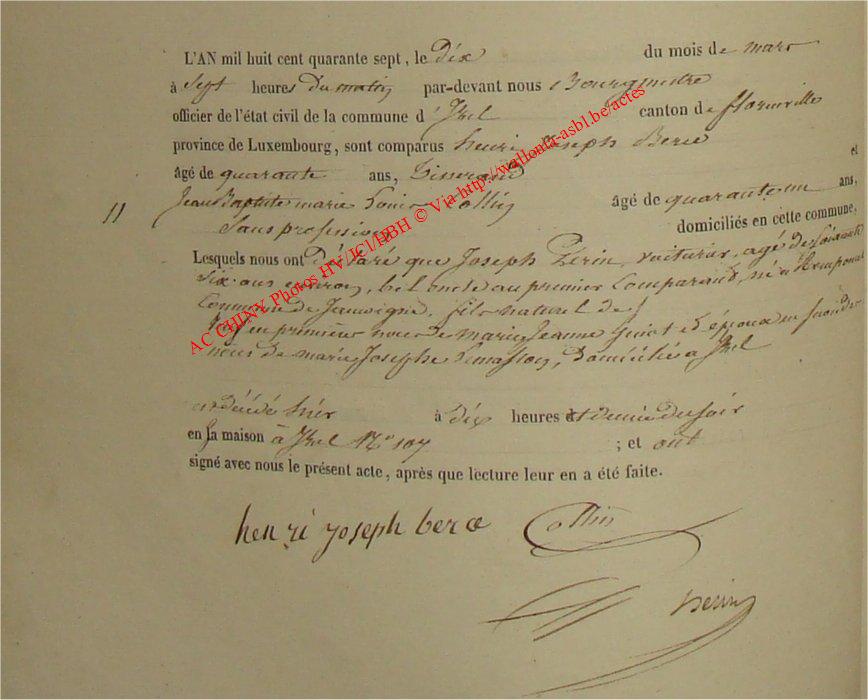 L'AN mil huit cent quarante sept, le Dix du mois de mars
à Sept heures Du matin par-devant nous Bourgmestre
officier de l'état civil de la commune d' Izel canton de florenville
province de Luxembourg, sont comparus henri Joseph Berce
âgé de quarante ans, Tisserand et
11 Jean Baptiste marie Collin âgé de quarante un ans,
Sans profession domiciliés en cette commune,
Lesquels nous ont Déclaré que Joseph Périn, voiturier, agé de soixante
Six ans environ, bel oncle au premier Comparant, né a
Commune de Jauvigne, fils naturel de
en premières noces de marie Jeanne et époux en secondes
noces de marie Josephe, Domicilié a Izel
est décédé hier à dix heures et demie du soir
en sa maison à Izel N° 107 ; et ont
signé avec nous le présent acte, après que lecture leur en a été faite.
henri joseph berce Collin
AC CHINY Photos HV/JCl/HBH © Via http://wallonia-asbl.be/actes